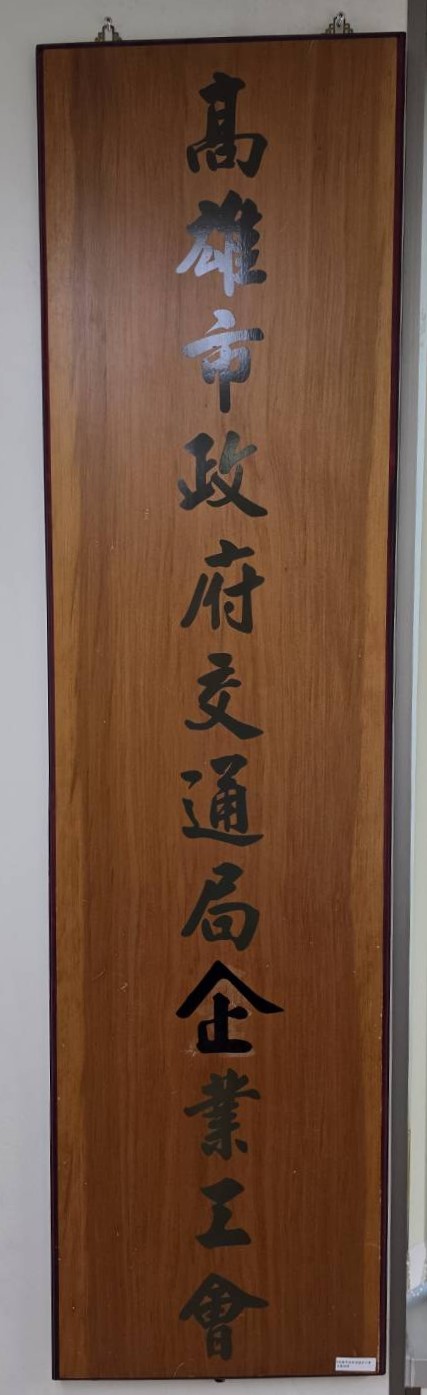 高雄市政府交通局企業工會